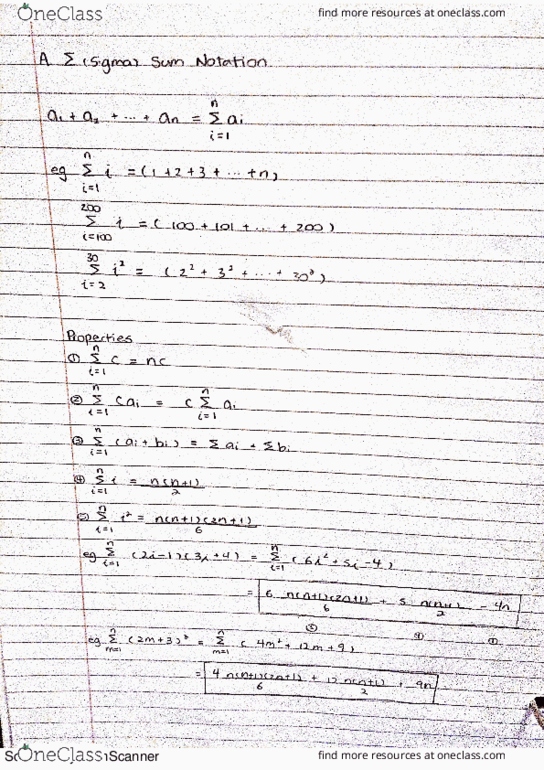 OneClass find more resources at oneclass.com
A. Σ (Sigma) Sum Notation
a₁ + a₂ + ... + aₙ = Σ_{i=1}^{n} aᵢ
eg Σ_{i=1}^{n} i = (1+2+3+ ... +n)
Σ_{i=100}^{200} i = (100 + 101 + ... + 200)
Σ_{i=2}^{30} i² = (2² + 3² + ... + 30²)
Properties
① Σ_{i=1}^{n} c = nc
② Σ_{i=1}^{n} caᵢ = c Σ_{i=1}^{n} aᵢ
③ Σ_{i=1}^{n} (aᵢ + bᵢ) = Σaᵢ + Σbᵢ
④ Σ_{i=1}^{n} i = n(n+1)/2
⑤ Σ_{i=1}^{n} i² = n(n+1)(2n+1)/6
eg Σ_{i=1}^{n} (2i-1)(3i+4) = Σ_{i=1}^{n} (6i² + 5i - 4)
= 6 n(n+1)(2n+1)/6 + 5 n(n+1)/2 - 4n
⑤ ④ ①
eg Σ_{m=1}^{n} (2m+3)² = Σ_{m=1}^{n} (4m² + 12m + 9)
= 4 n(n+1)(2n+1)/6 + 12 n(n+1)/2 + 9n
OneClass Scanner find more resources at oneclass.com